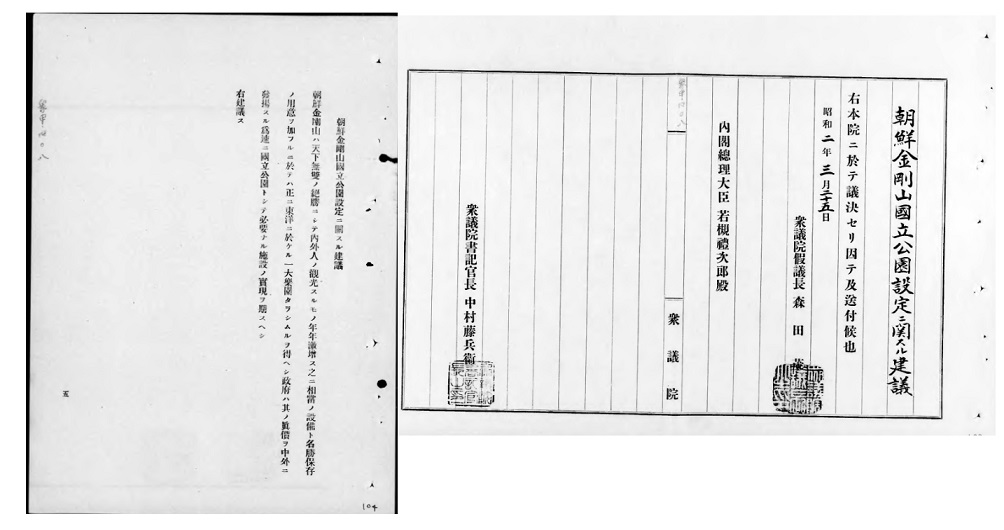 朝鮮金剛山國立公園設定ニ関スル建議
右本院ニ於テ議決セリ因テ及送付候也
昭和二年三月二十五日
衆議院假議長 森田茂
内閣總理大臣 若槻禮次郎殿
衆議院
衆議院書記官長 中村藤兵衞
朝鮮金剛山國立公園設定ニ關スル建議
朝鮮金剛山ハ天下無雙ノ絕勝ニシテ內外人ノ觀光スルモノ年年激增ス之ニ相當ノ設備ト名勝保存
ノ用意ヲ加フルニ於テハ正ニ東洋ニ於ケル一大樂園タラシムルヲ得ヘシ政府ハ其ノ眞價ヲ中外ニ
發揚スル爲速ニ國立公園トシテ必要ナル施設ノ實現ヲ期スヘシ
右建議ス
五
104